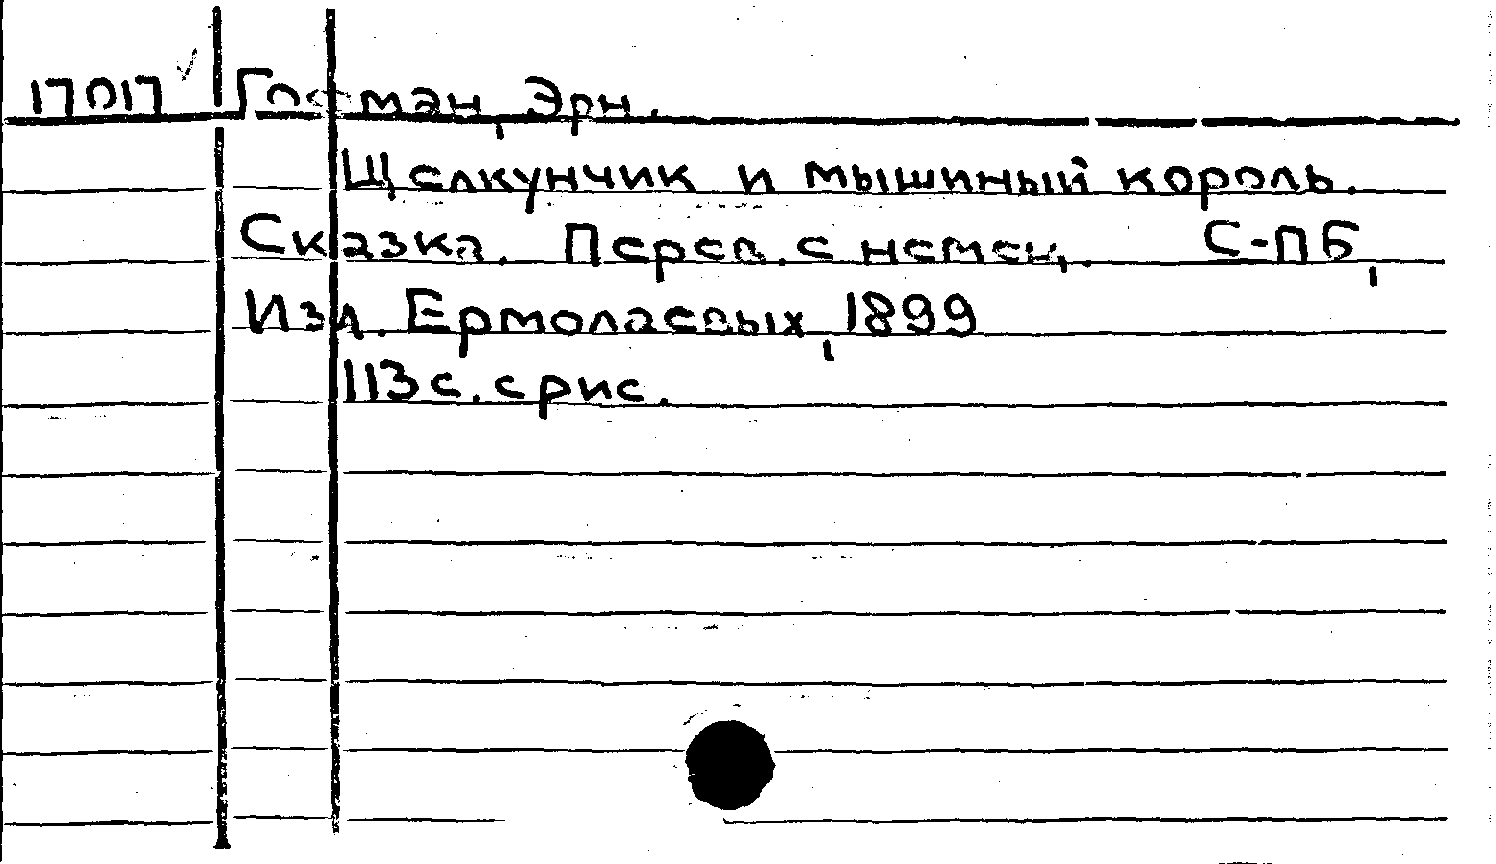 17017 Гофман, Эрн.
Щелкунчик и мышиный король.
Сказка. Перев. с немец. С-ПБ,
Изд. Ермолаевых, 1899
113 с. с рис.